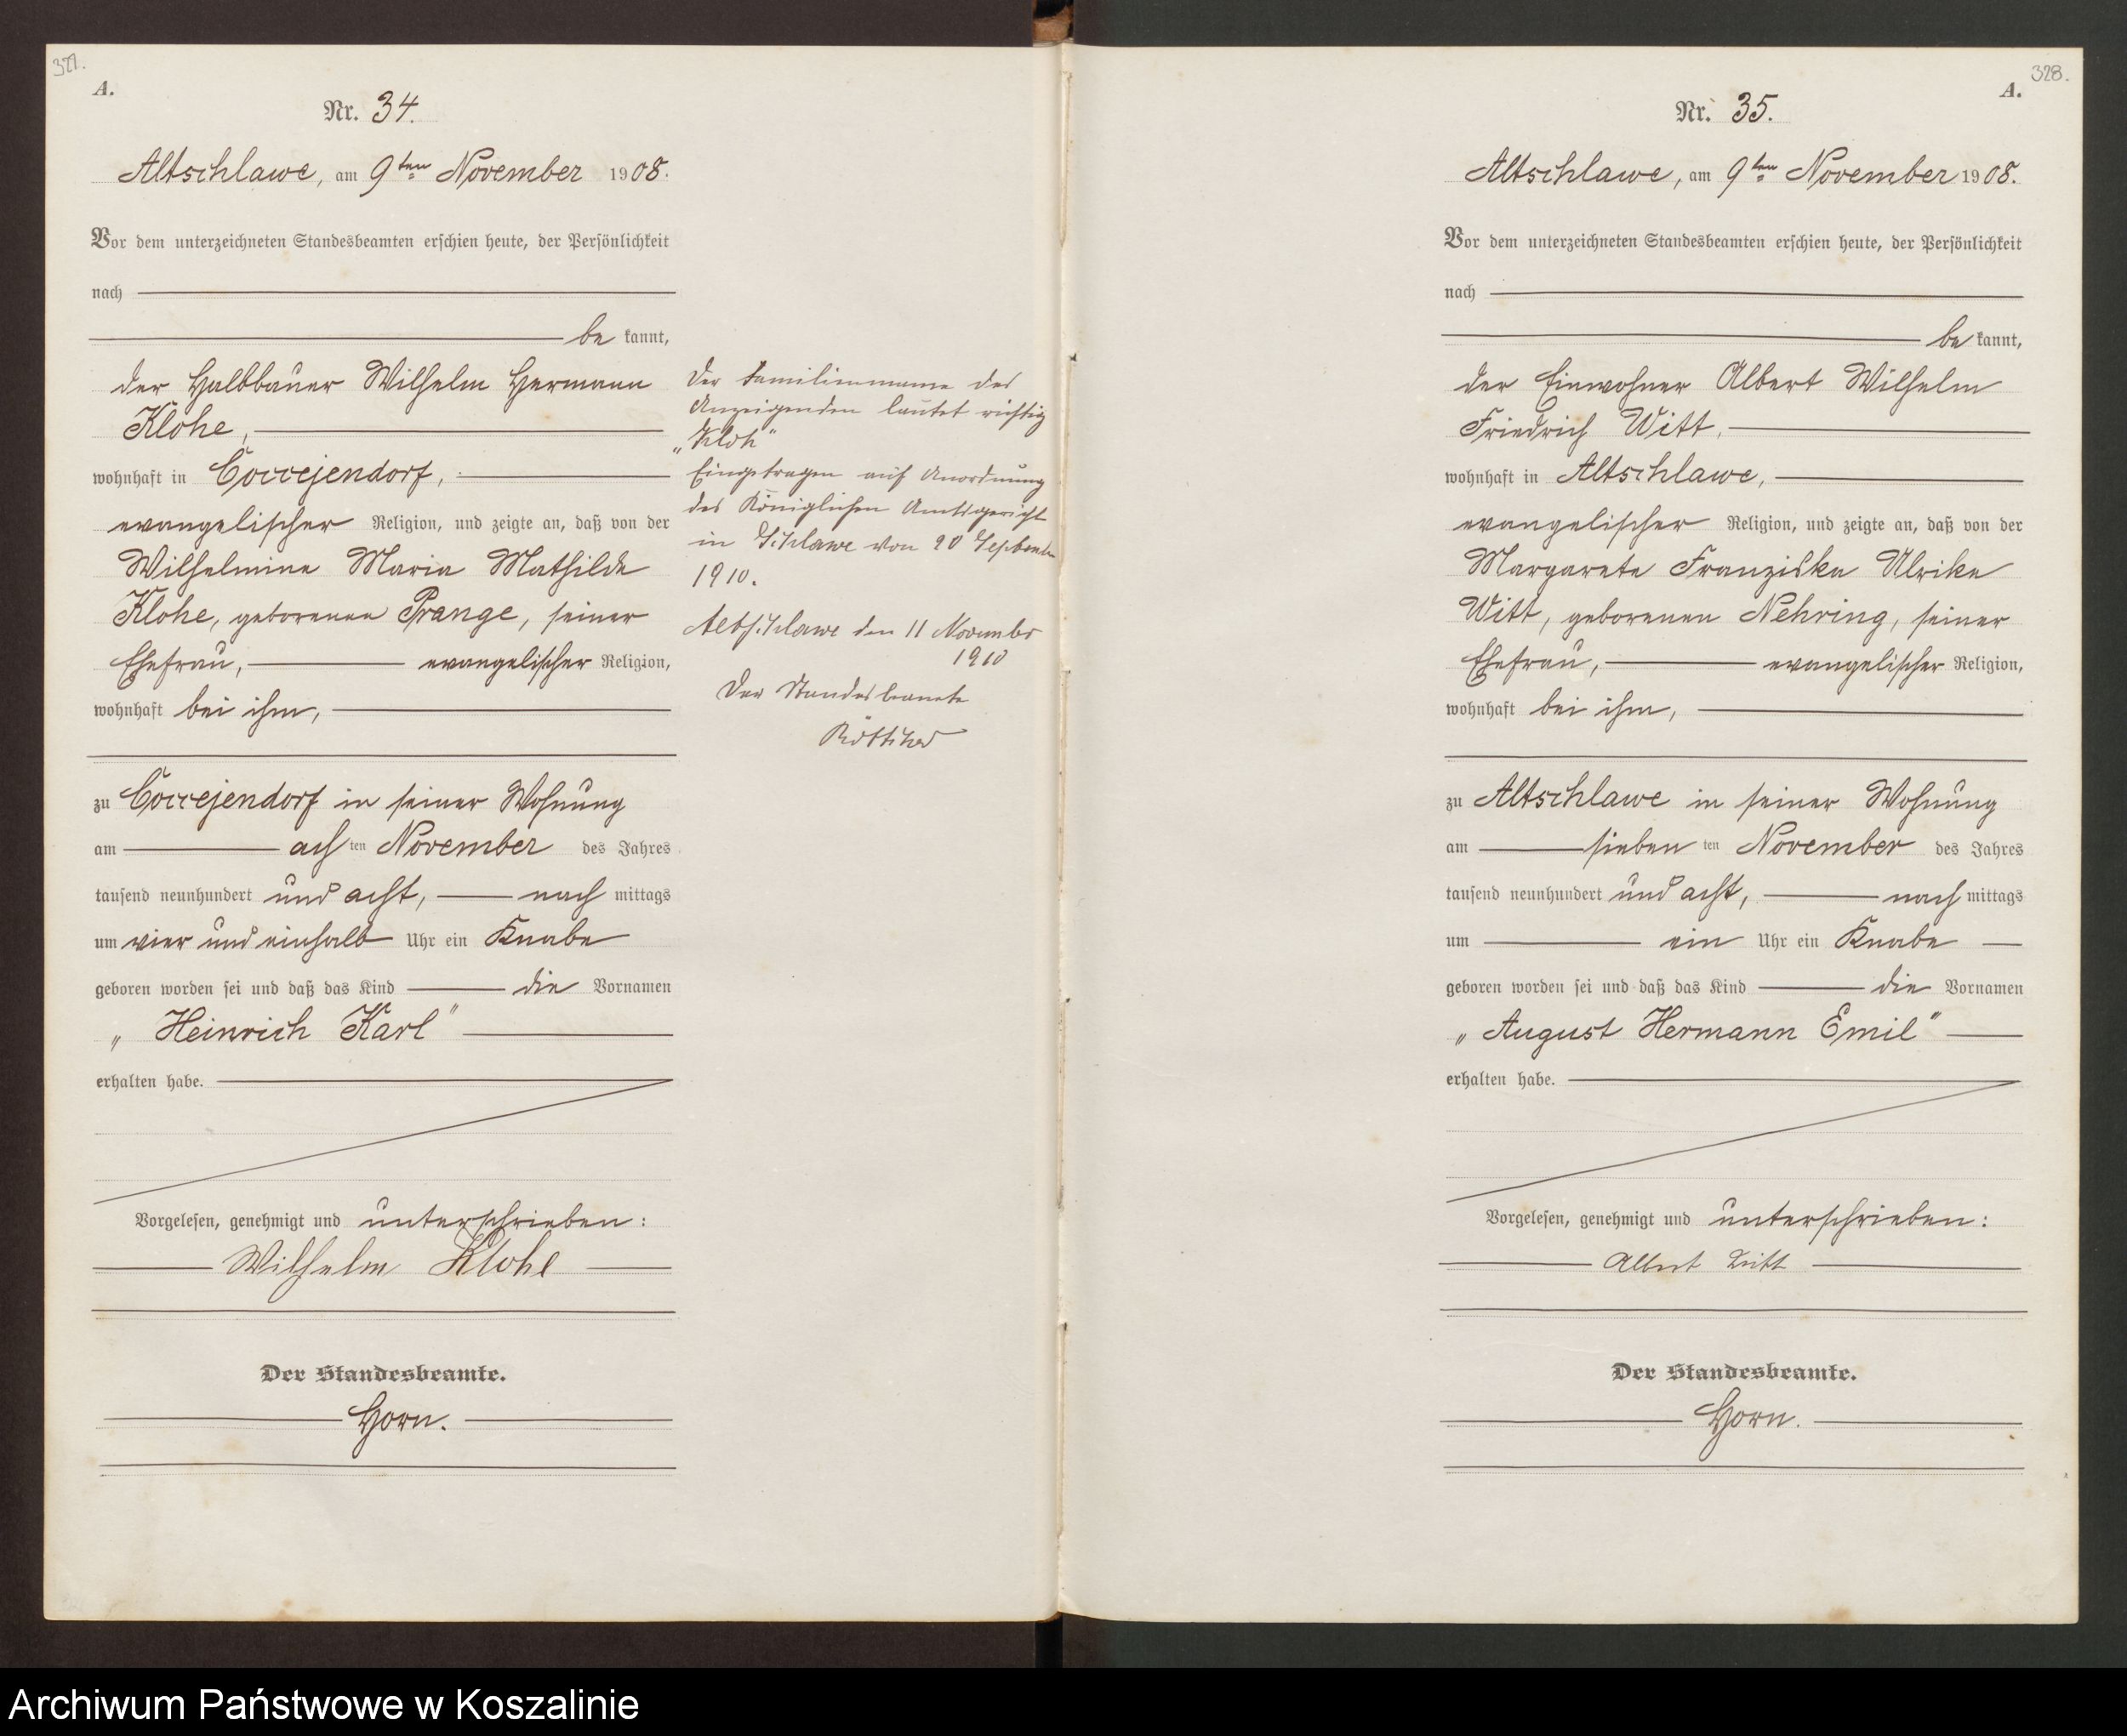 327.
A.
Nr. 34.
Altschlawe, am 9ten November 1908.
Vor dem unterzeichneten Standesbeamten erschien heute, der Persönlichkeit
nach
be kannt,
der Halbbauer Wilhelm Hermann
Klohe,
wohnhaft in Coccejendorf,
evangelischer Religion, und zeigte an, daß von der
Wilhelmine Maria Mathilde
Klohe, geborenen Prange, seiner
Ehefrau, evangelischer Religion,
wohnhaft bei ihm,
zu Coccejendorf in seiner Wohnung
am ach ten November des Jahres
tausend neunhundert und acht, nach mittags
um vier und einhalb Uhr ein Knabe
geboren worden sei und daß das Kind die Vornamen
„Heinrich Karl"
erhalten habe.
Vorgelesen, genehmigt und unterschrieben:
Wilhelm Klohe
Der Standesbeamte.
Horn.
Der Familienname des
Anzeigenden lautet richtig
„Kloh"
Eingetragen auf Anordnung
des Königlichen Amtsgericht
in Schlawe von 20 September
1910.
Altschlawe den 11 November
1910
Der Standesbeamte
328.
A.
Nr. 35.
Altschlawe, am 9ten November 1908.
Vor dem unterzeichneten Standesbeamten erschien heute, der Persönlichkeit
nach
be kannt,
der Einwohner Albert Wilhelm
Friedrich Witt,
wohnhaft in Altschlawe,
evangelischer Religion, und zeigte an, daß von der
Margarete Franziska Ulrike
Witt, geborenen Nehring, seiner
Ehefrau, evangelischer Religion,
wohnhaft bei ihm,
zu Altschlawe in seiner Wohnung
am sieben ten November des Jahres
tausend neunhundert und acht, nach mittags
um ein Uhr ein Knabe
geboren worden sei und daß das Kind die Vornamen
„August Hermann Emil"
erhalten habe.
Vorgelesen, genehmigt und unterschrieben:
Albert Witt
Der Standesbeamte.
Horn.
Archiwum Państwowe w Koszalinie